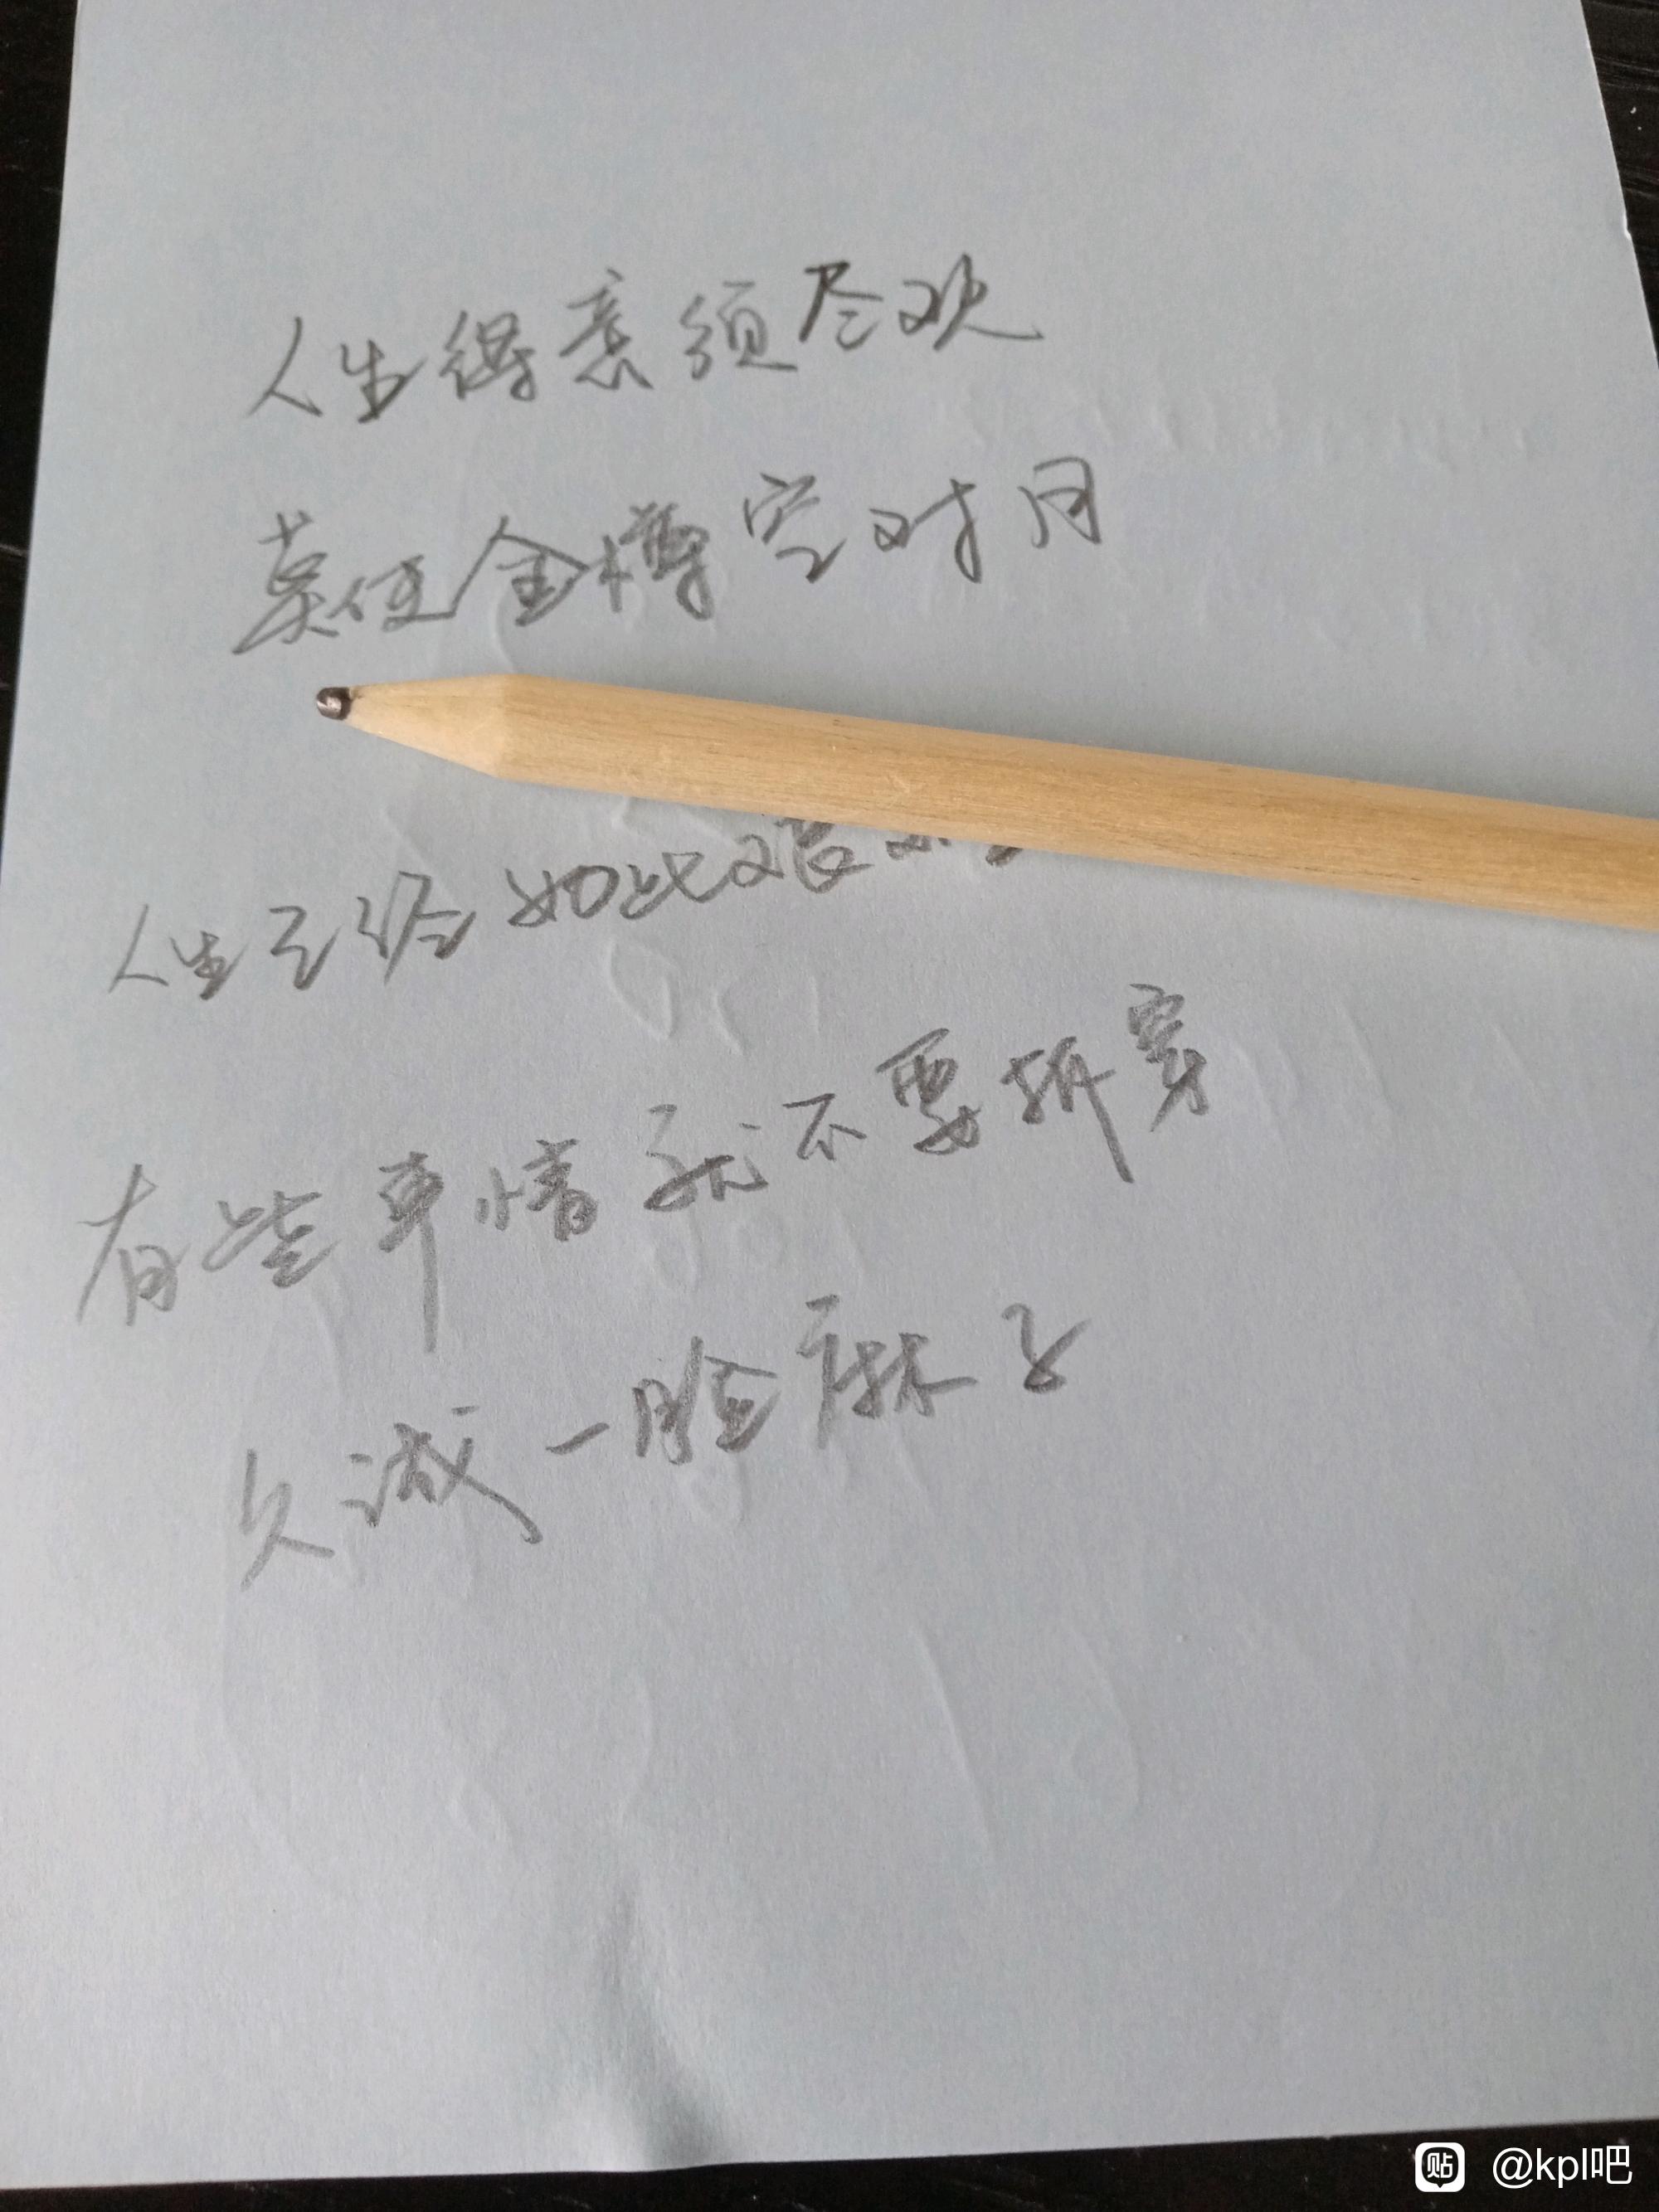 人生得意须尽欢
莫使金樽空对月
人生已经如此艰
有些事情就不要拆穿
久诚一脸麻子
贴 @kpl吧